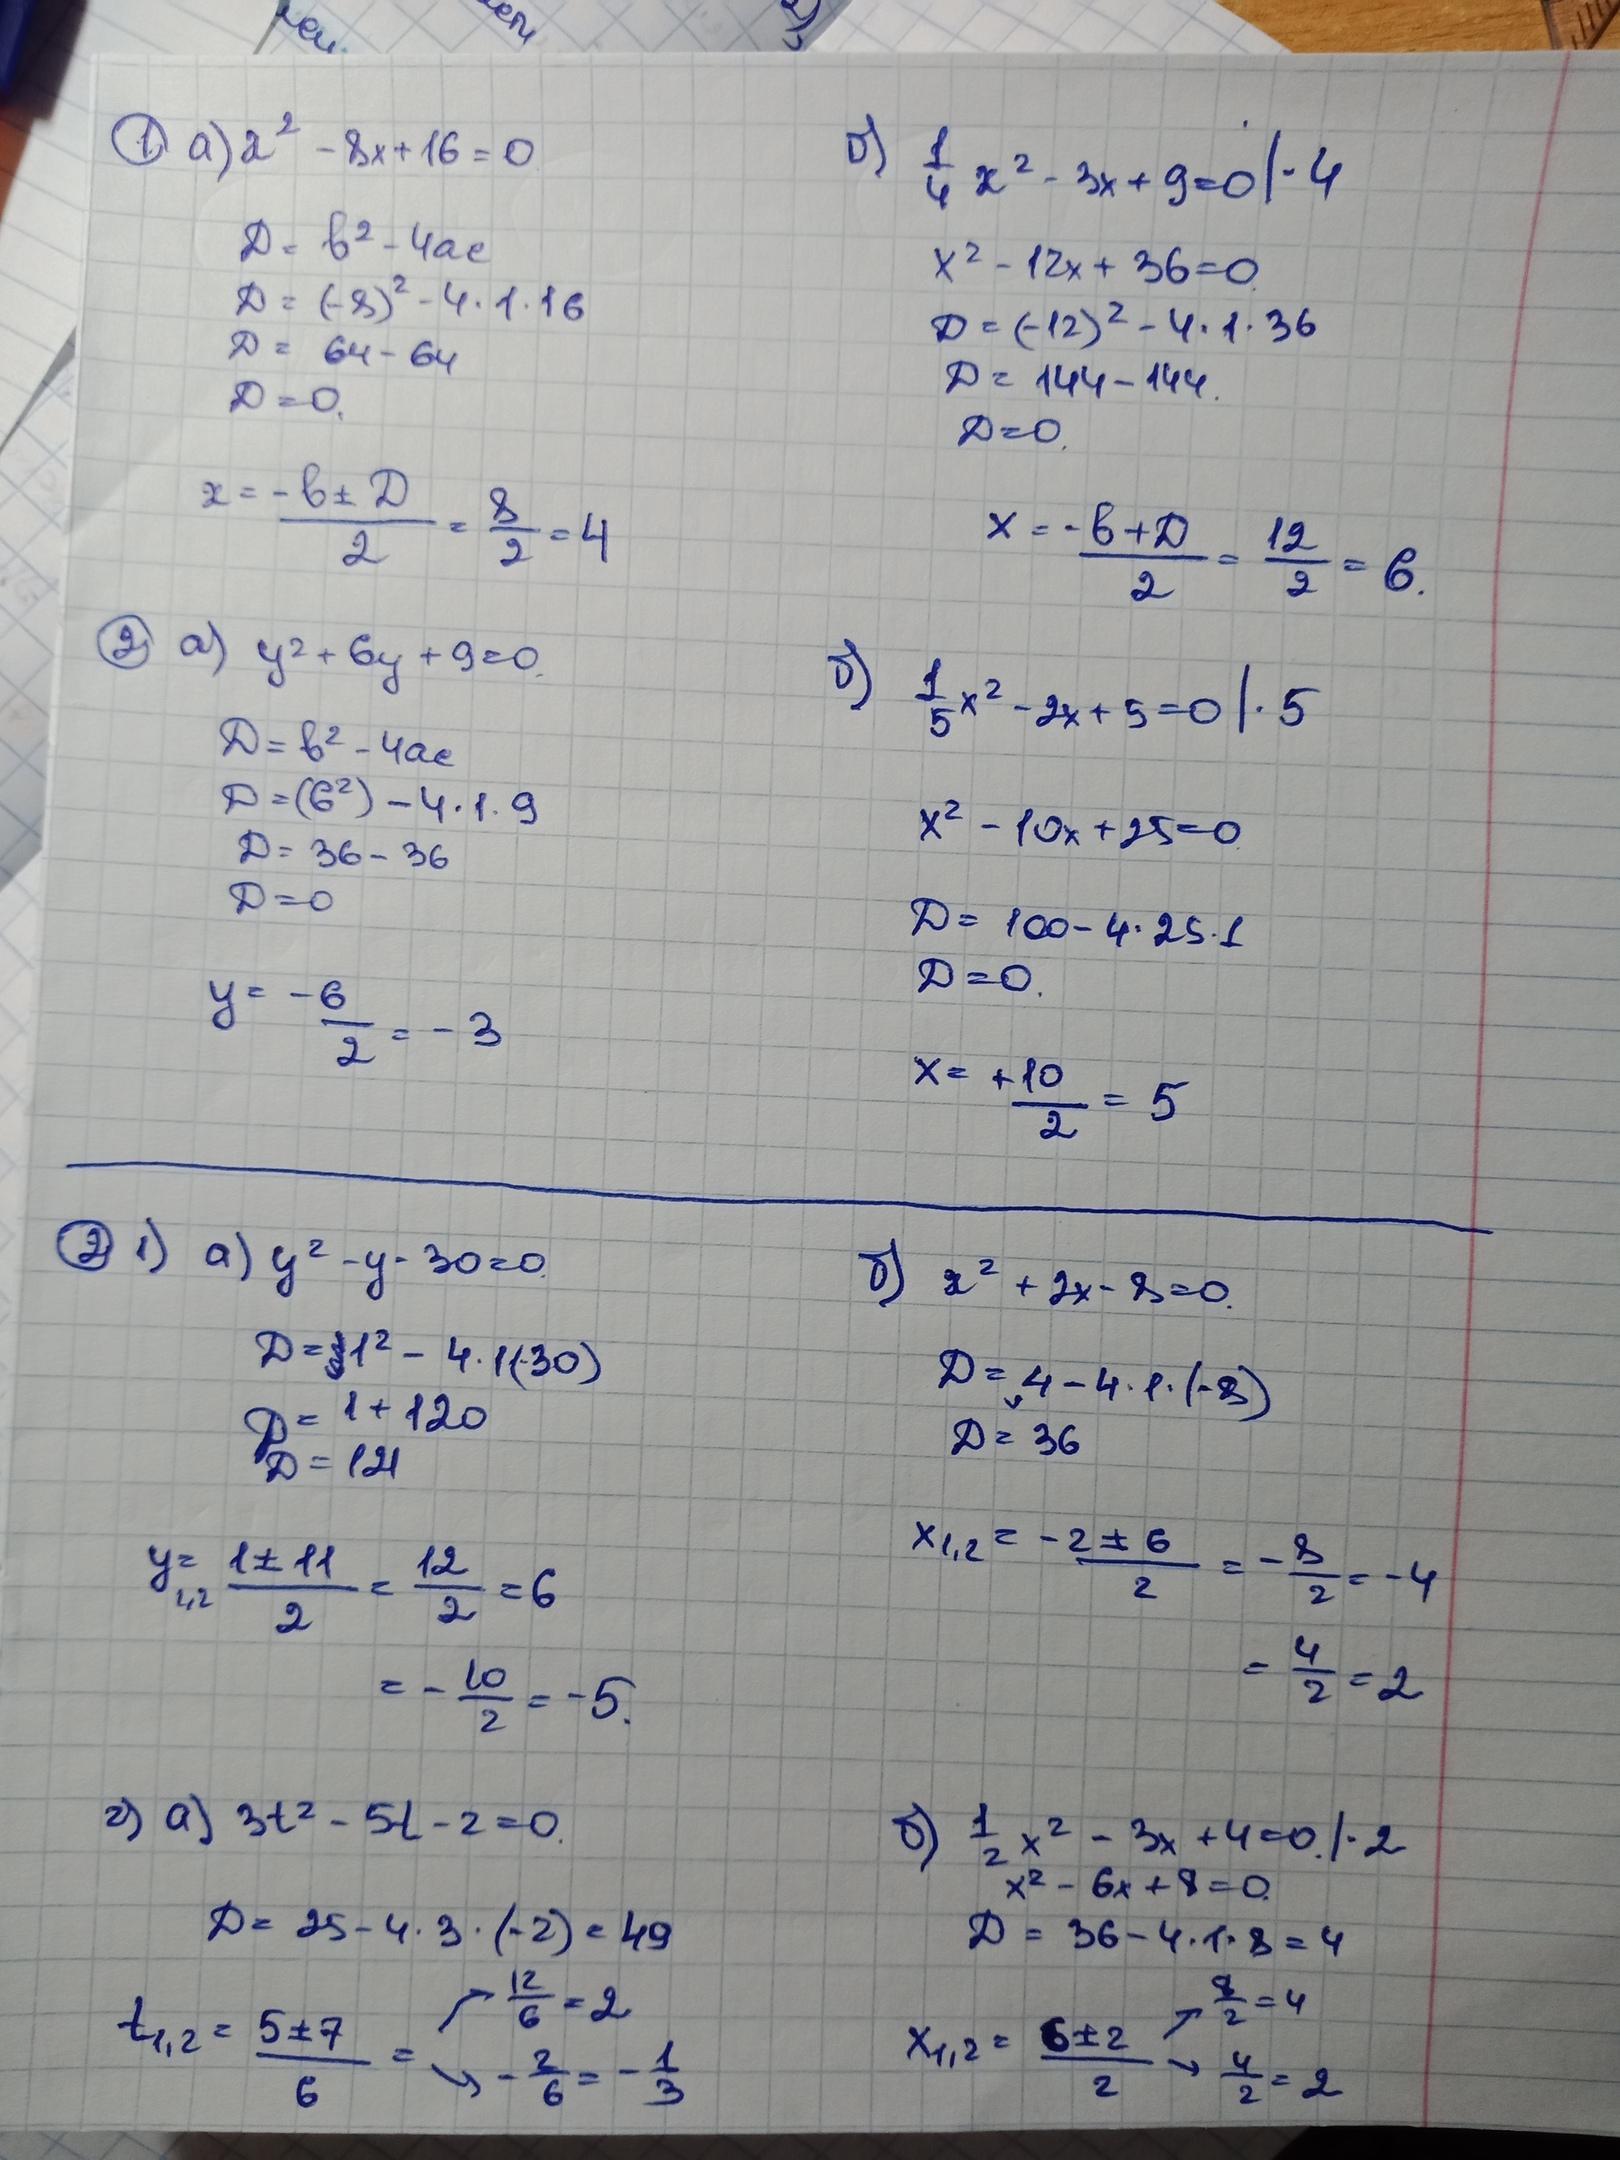 ① а) x² - 8x + 16 = 0
D = b² - 4ac
D = (-8)² - 4·1·16
D = 64 - 64
D = 0.
x = (-b ± D)/2 = 8/2 = 4
б) 1/4 x² - 3x + 9 = 0 |·4
x² - 12x + 36 = 0
D = (-12)² - 4·1·36
D = 144 - 144.
D = 0.
x = (-b + D)/2 = 12/2 = 6.
② а) y² + 6y + 9 = 0.
D = b² - 4ac
D = (6²) - 4·1·9
D = 36 - 36
D = 0
y = -6/2 = -3
б) 1/5 x² - 2x + 5 = 0 |·5
x² - 10x + 25 = 0
D = 100 - 4·25·1
D = 0.
x = +10/2 = 5
② 1) а) y² - y - 30 = 0.
D = 1² - 4·1(-30)
D = 1 + 120
D = 121
y1,2 = (1 ± 11)/2 = 12/2 = 6
= -10/2 = -5.
б) x² + 2x - 8 = 0.
D = 4 - 4·1·(-8)
D = 36
x1,2 = (-2 ± 6)/2 = -8/2 = -4
= 4/2 = 2
2) а) 3t² - 5t - 2 = 0.
D = 25 - 4·3·(-2) = 49
t1,2 = (5 ± 7)/6 = ↗ 12/6 = 2
↘ -2/6 = -1/3
б) 1/2 x² - 3x + 4 = 0. |·2
x² - 6x + 8 = 0.
D = 36 - 4·1·8 = 4
x1,2 = (6 ± 2)/2 ↗ 8/2 = 4
↘ 4/2 = 2